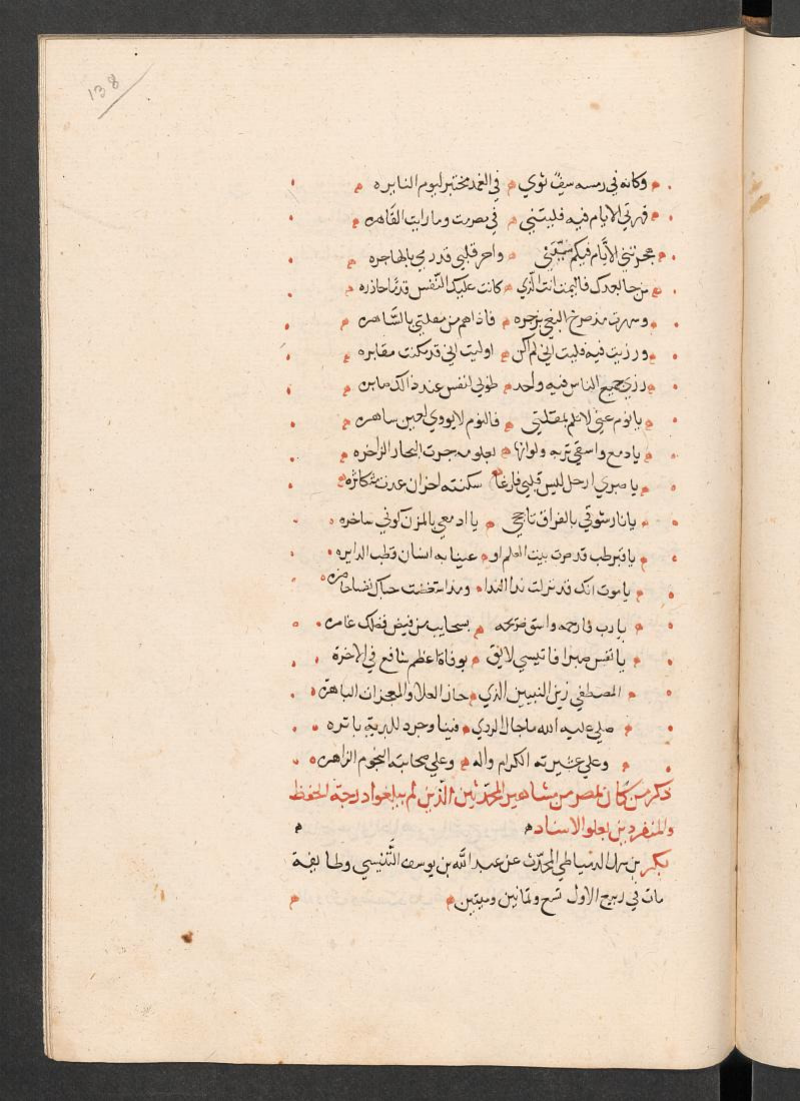 138
وكانه في رمسه سيف ثوي في الغمد مختبر ليوم النايره
قهرتني الايام فيه فليتني في مصر مت وما رايت القاهره
هجرتني الايام فيكم سيدي واحر قلبي قد رمي بالهاجره
من جا بعدك فاليمت انت الذي كانت عليك النفس قدما حاذره
وسهرت مذ صرخ النعي بزجره فاذا هم من مقلتي بالساهره
ورزيت فيه فليت اني لم اكن اوليت اني قد سكنت مقابره
رزي جميع الناس فيه واحد طوبي لنفس عند ذالك صابره
يا نوم عيني لا تلم بمقلتي فالنوم لا يووي لعين ساهره
يا دمع واسقي تربه ولو انها بعلومه جرت البحار الزاخره
يا صبري ارحل ليس قلبي فارغا سكنته احزان غدت متكاثره
يا نار شوقي بالفراق تاججي يا ادمعي بالمزن كوني ساخره
يا قبر طب قد صرت بيت العلم او عينا به انسان قطب الدايره
يا موت انك قد نزلت بذا الندا ومذ استضفت حباك نفسا حاضره
يا رب فارحمه واسق ضريحه بسحايب من فيض فضلك غامره
يا نفس صبرا فاتيسي لايق بوفاة اعظم شافع في الاخرة
المصطفي زين النبيين الذي حاز العلا والمعجزات الباهره
صلي عليه الله ما جال الردي فينا وجرد للبرية باتره
وعلي عشيرته الكرام واله وعلي صحابته النجوم الزاهره
ذكر من كان بمصر من مشاهير المحدثين الذين لم يبلغوا درجة الحفظ
والمنفردين بعلو الاسناد
بكر بن سهل الدمياطي المحدث عن عبد الله بن يوسف التنيسي وطايفة
مات في ربيع الاول تسع وثمانين وميتين